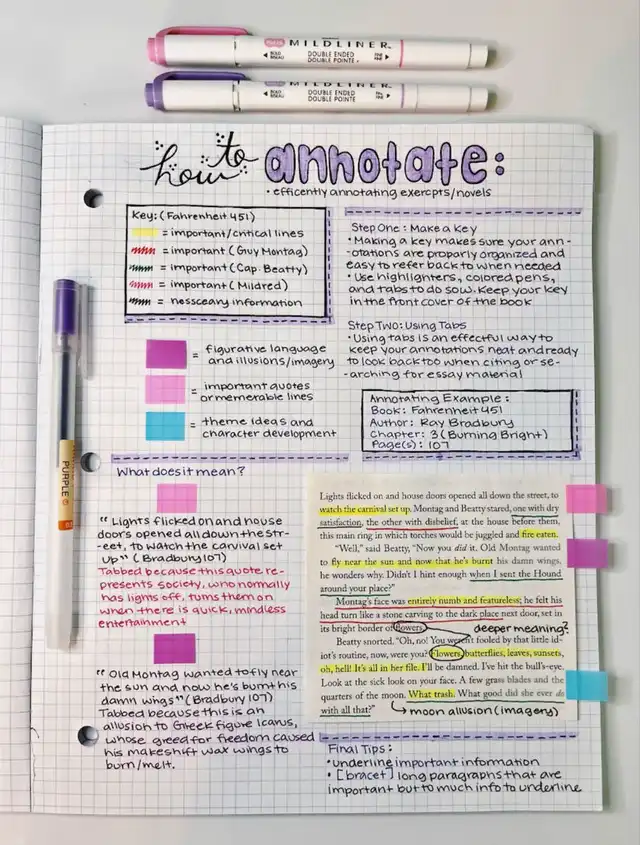 MILDLINER™
BOLD BISEAU
DOUBLE ENDED
DOUBLE POINTE
FINE FINE
MILDLINER™
BOLD BISEAU
DOUBLE ENDED
DOUBLE POINTE
FINE FINE
how to annotate:
• efficently annotating exercpts/novels
Key: (Fahrenheit 451)
= important/critical lines
= important (Guy Montag)
= important (Cap. Beatty)
= important (Mildred)
= nessceary information
Step One: Make a Key
• Making a key makes sure your ann-
otations are properly organized and
easy to refer back to when needed
• Use highlighters, colored pens,
and tabs to do sow. Keep your key
in the front cover of the book
Step Two: Using Tabs
• Using tabs is an effectful way to
keep your annotations neat and ready
to look back too when citing or se-
arching for essay material
= figurative language
and illusions/imagery
= important quotes
or memerable lines
= theme ideas and
character development
Annotating Example:
Book: Fahrenheit 451
Author: Ray Bradbury
Chapter: 3 (Burning Bright)
Page(s): 107
PURPLE
What does it mean?
"Lights flicked on and house
doors opened all down the str-
eet, to watch the carvival set
up" (Bradbury 107)
Tabbed because this quote re-
presents society, who normally
has lights off, turns them on
when there is quick, mindless
entertainment
"Old Montag wanted to fly near
the sun and now he's burnt his
damn wings" (Bradbury 107)
Tabbed because this is an
allusion to Greek figure Icarus,
whose greed for freedom caused
his makeshift wax wings to
burn/melt.
Lights flicked on and house doors opened all down the street, to
watch the carnival set up. Montag and Beatty stared, one with dry
satisfaction, the other with disbelief, at the house before them,
this main ring in which torches would be juggled and fire eaten.
"Well," said Beatty, "Now you did it. Old Montag wanted
to fly near the sun and now that he's burnt his damn wings,
he wonders why. Didn't I hint enough when I sent the Hound
around your place?"
Montag's face was entirely numb and featureless; he felt his
head turn like a stone carving to the dark place next door, set in
its bright border of flowers.
deeper meaning?
Beatty snorted. "Oh, no! You weren't fooled by that little id-
iot's routine, now, were you? Flowers, butterflies, leaves, sunsets,
oh, hell! It's all in her file. I'll be damned. I've hit the bull's-eye.
Look at the sick look on your face. A few grass blades and the
quarters of the moon. What trash. What good did she ever do
with all that?"
moon allusion (imagery)
Final Tips:
• underline important information
• [bracet] long paragraphs that are
important but to much info to underline